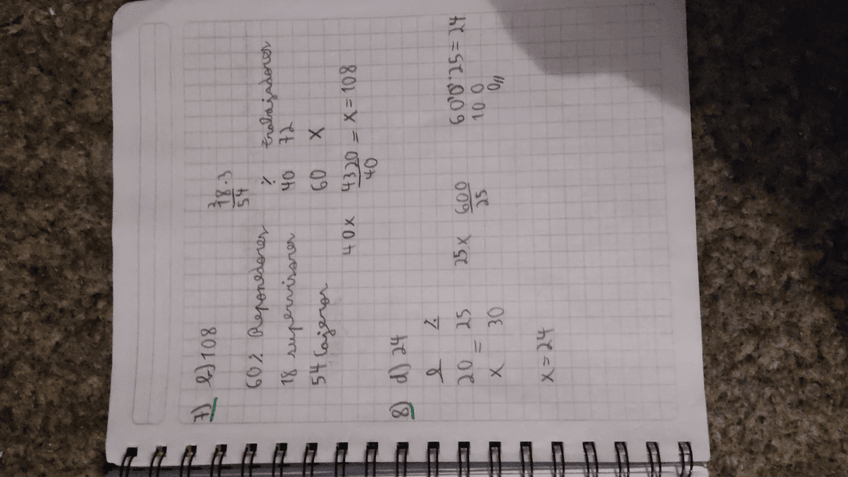 7) b) 108
18·3
54
60% Reponedores % trabajadores
18 supervisores 40 72
54 Cajeros 60 X
40x 4320 = X = 108
40
8) d) 24
l %
20 = 25 25x 600 600:25=24
x 30 25 10 0
0//
x = 24